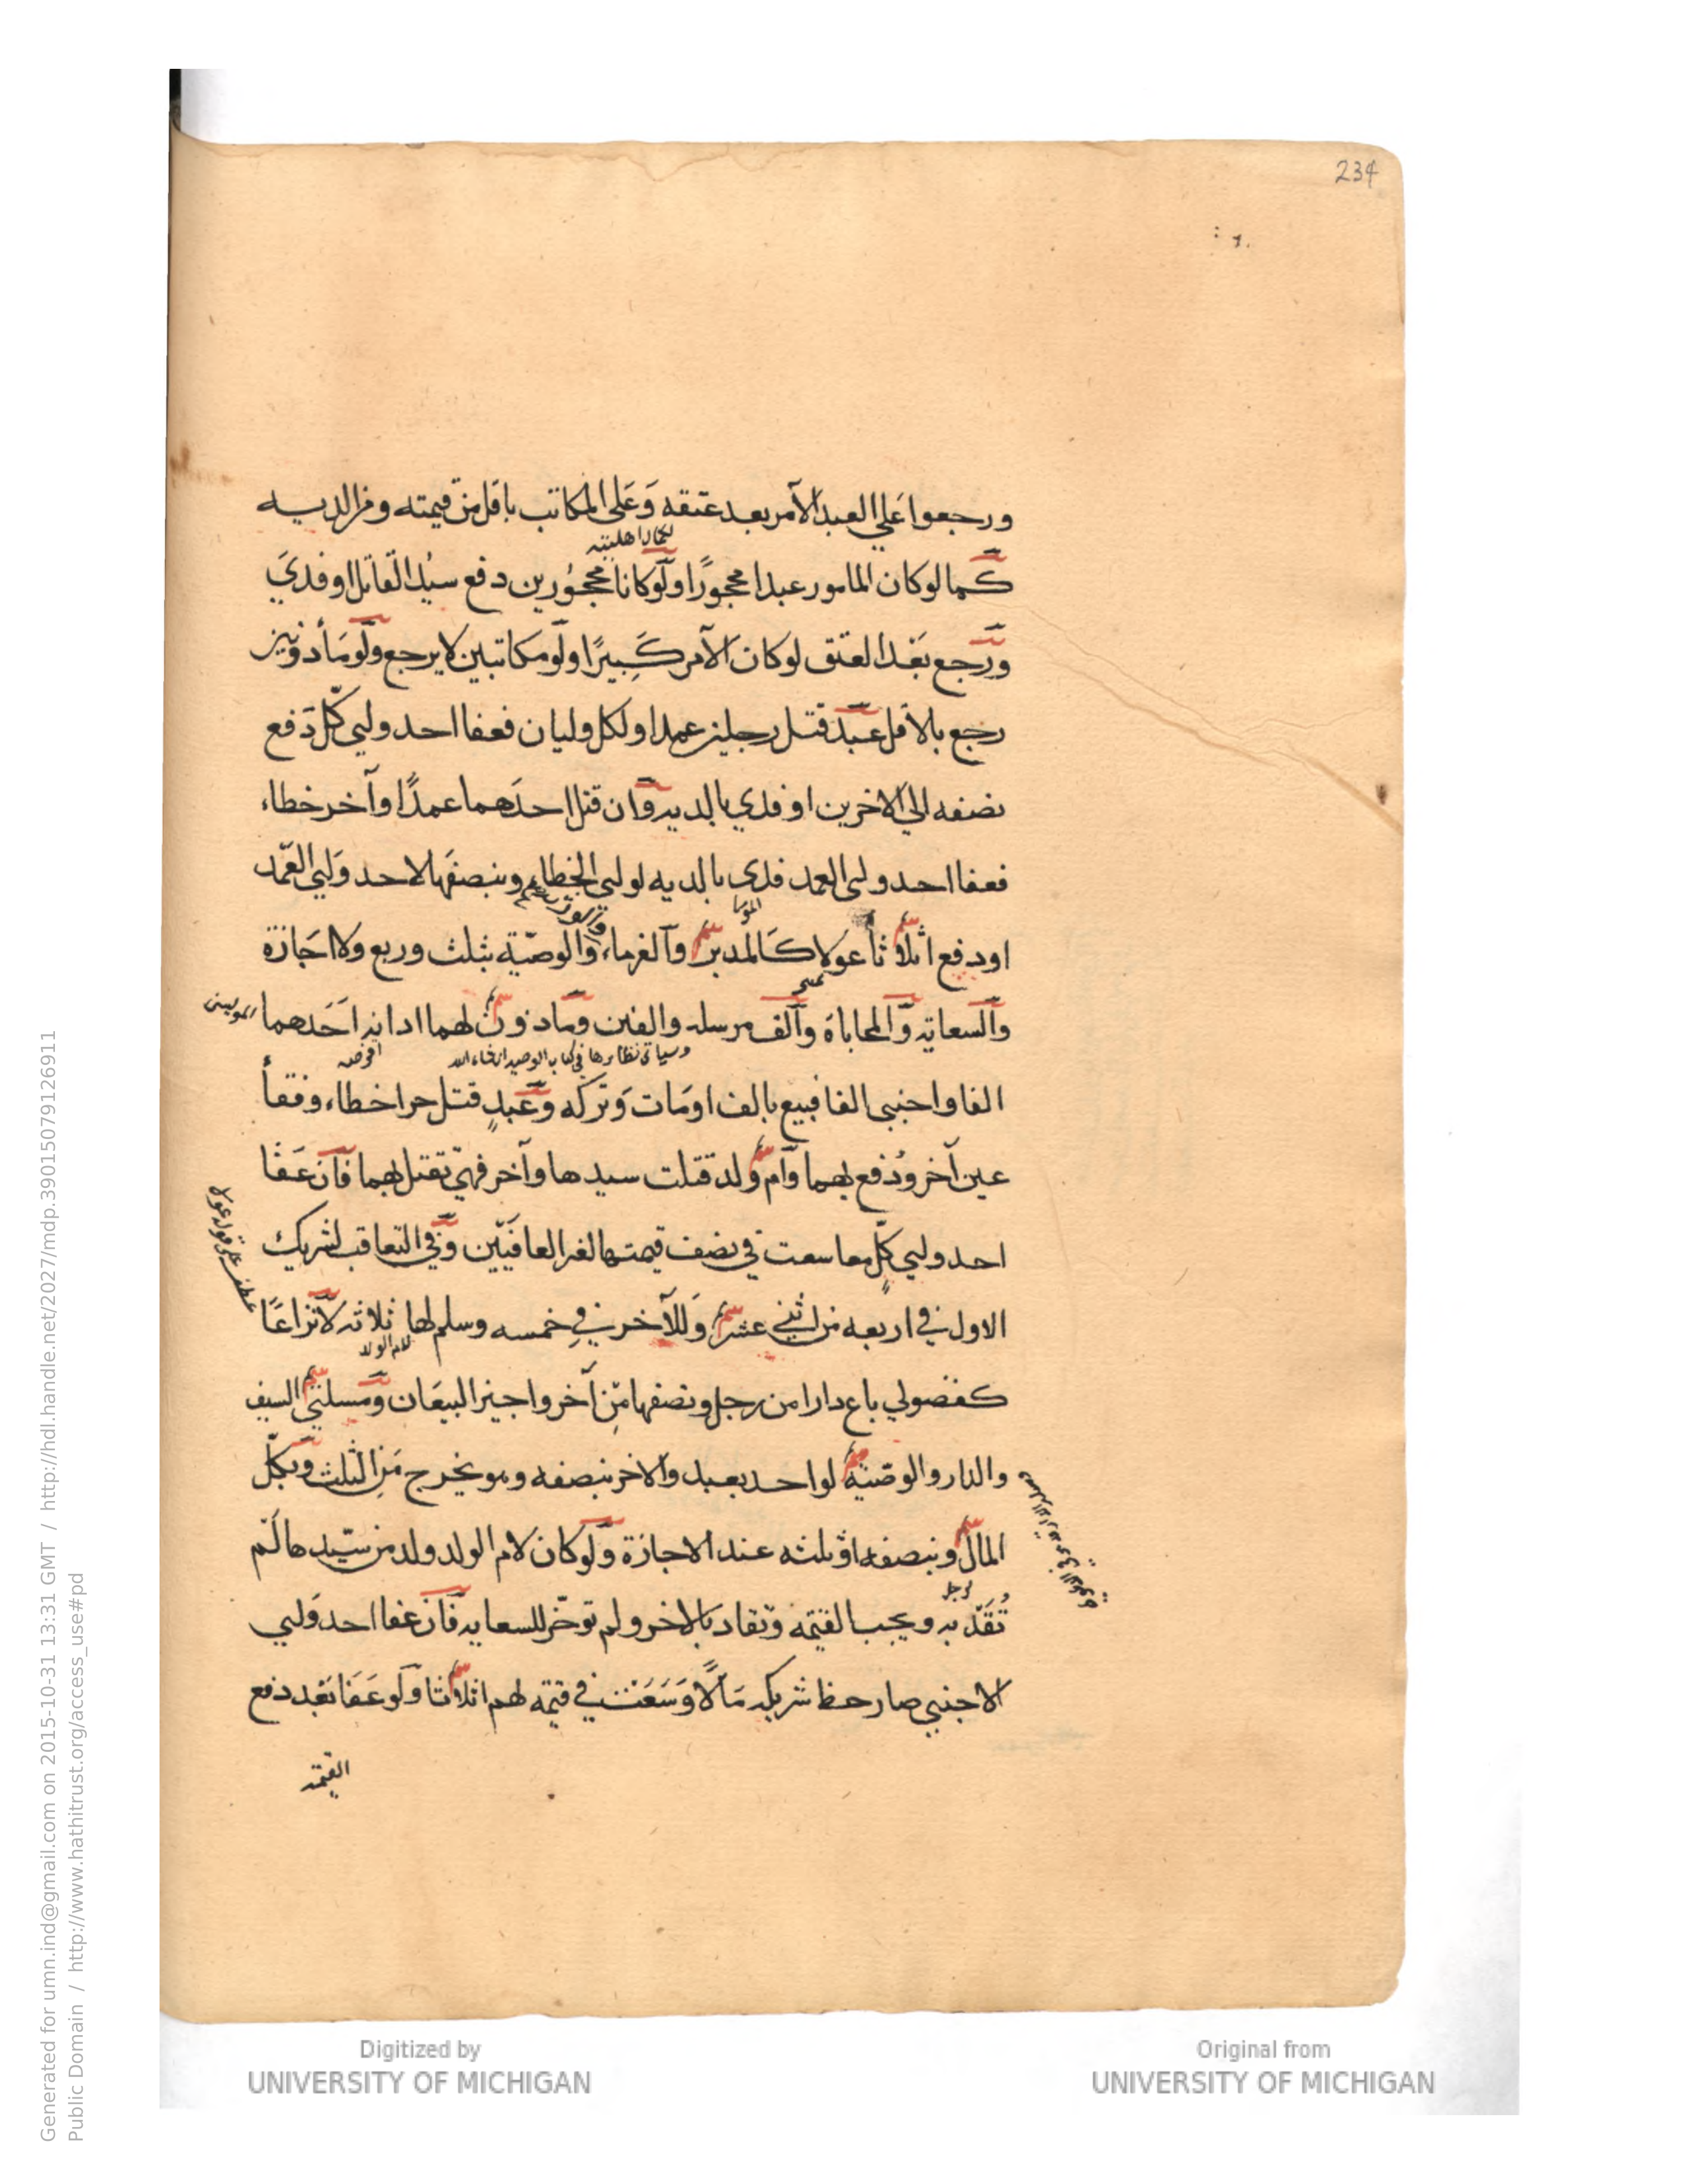 234
ورجعوا علي العبد الآمر بعد عتقه وَعَلى المكاتب باقل من قيمته ومن الديه
لكمال اهليته
كما لوكان المامور عبدا محجورًا ولَوكانا محجُورين دفع سيد القاتل او فديَ
ورجع بَعْد العتق لو كان الآمر كَبِيرًا ولَو مكاتبين لا يرجع ولَو مَأذونين
رجع بالاقل عَبد قتل رجلين عمدا ولكل وليان فعفا احد وليي كل دَفع
نصفه الي الاخرين او فدي بالديه وان قتل احدَهما عمدًا وآخر خطاء
فعفا احد وليي العمد فدى بالديه لولي الخطاء وبنصفَها لاحد وَليي العَمد
او دفع اثلاثا عولا كَالمدبر والغرماء والوصيّة بثلث وربع ولا اجَازة
والسعايه والمحاباة وألف مرسله والفين ومادون لهما ادانه احَدهما
وسياتي نظايرها في كتاب الوصيه ان شاء الله
اقرضه
الفا واجنبي الفا فبيع بالف او مَات وَتركه وعَبدٍ قتل حرا خطاء وفقأ
عين آخر ودُفع بهما وام ولد قتلت سيدها وآخر فهيَ تقتل بهما فان عَفا
احد وليي كلٍّ معا سعت في نصف قيمتها لغير العافيَيّن وفي التعاقب لشريك
عطف على قوله عولا
الاول في اربعه من اثني عشر وَللآخر في خمسه وسلم لها ثلاثه لا نزاعًا
لام الولد
كفضولي باع دارا من رجل ونصفها مِن آخر واجيز البيعَان ومَسلتي السيف
والدار والوصَية لواحد بعبد والاخر بنصفه وهو يخرج مَن الثلث وبكل
المال وبنصفه او ثلثه عند الاجازة ولَوكان لام الولد ولد من سَيّدها لَم
تُقَد به ويجب القيمَه وتقاد بالاخر ولم توخّر للسعايه فان عفا احد وَليي
الاجنبي صار حظ شريكه مَالًا وَسَعَت في قيمَه لهم اثلاثا ولَو عَفَا بَعْد دفع
القيمه
Digitized by
UNIVERSITY OF MICHIGAN
Original from
UNIVERSITY OF MICHIGAN
Generated for umn.ind@gmail.com on 2015-10-31 13:31 GMT / http://hdl.handle.net/2027/mdp.39015079126911
Public Domain / http://www.hathitrust.org/access_use#pd